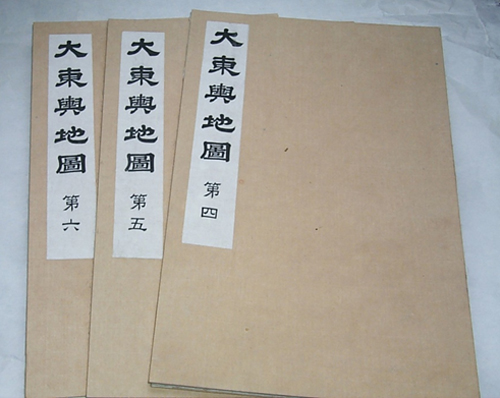 大東輿地圖 第六
大東輿地圖 第五
大東輿地圖 第四